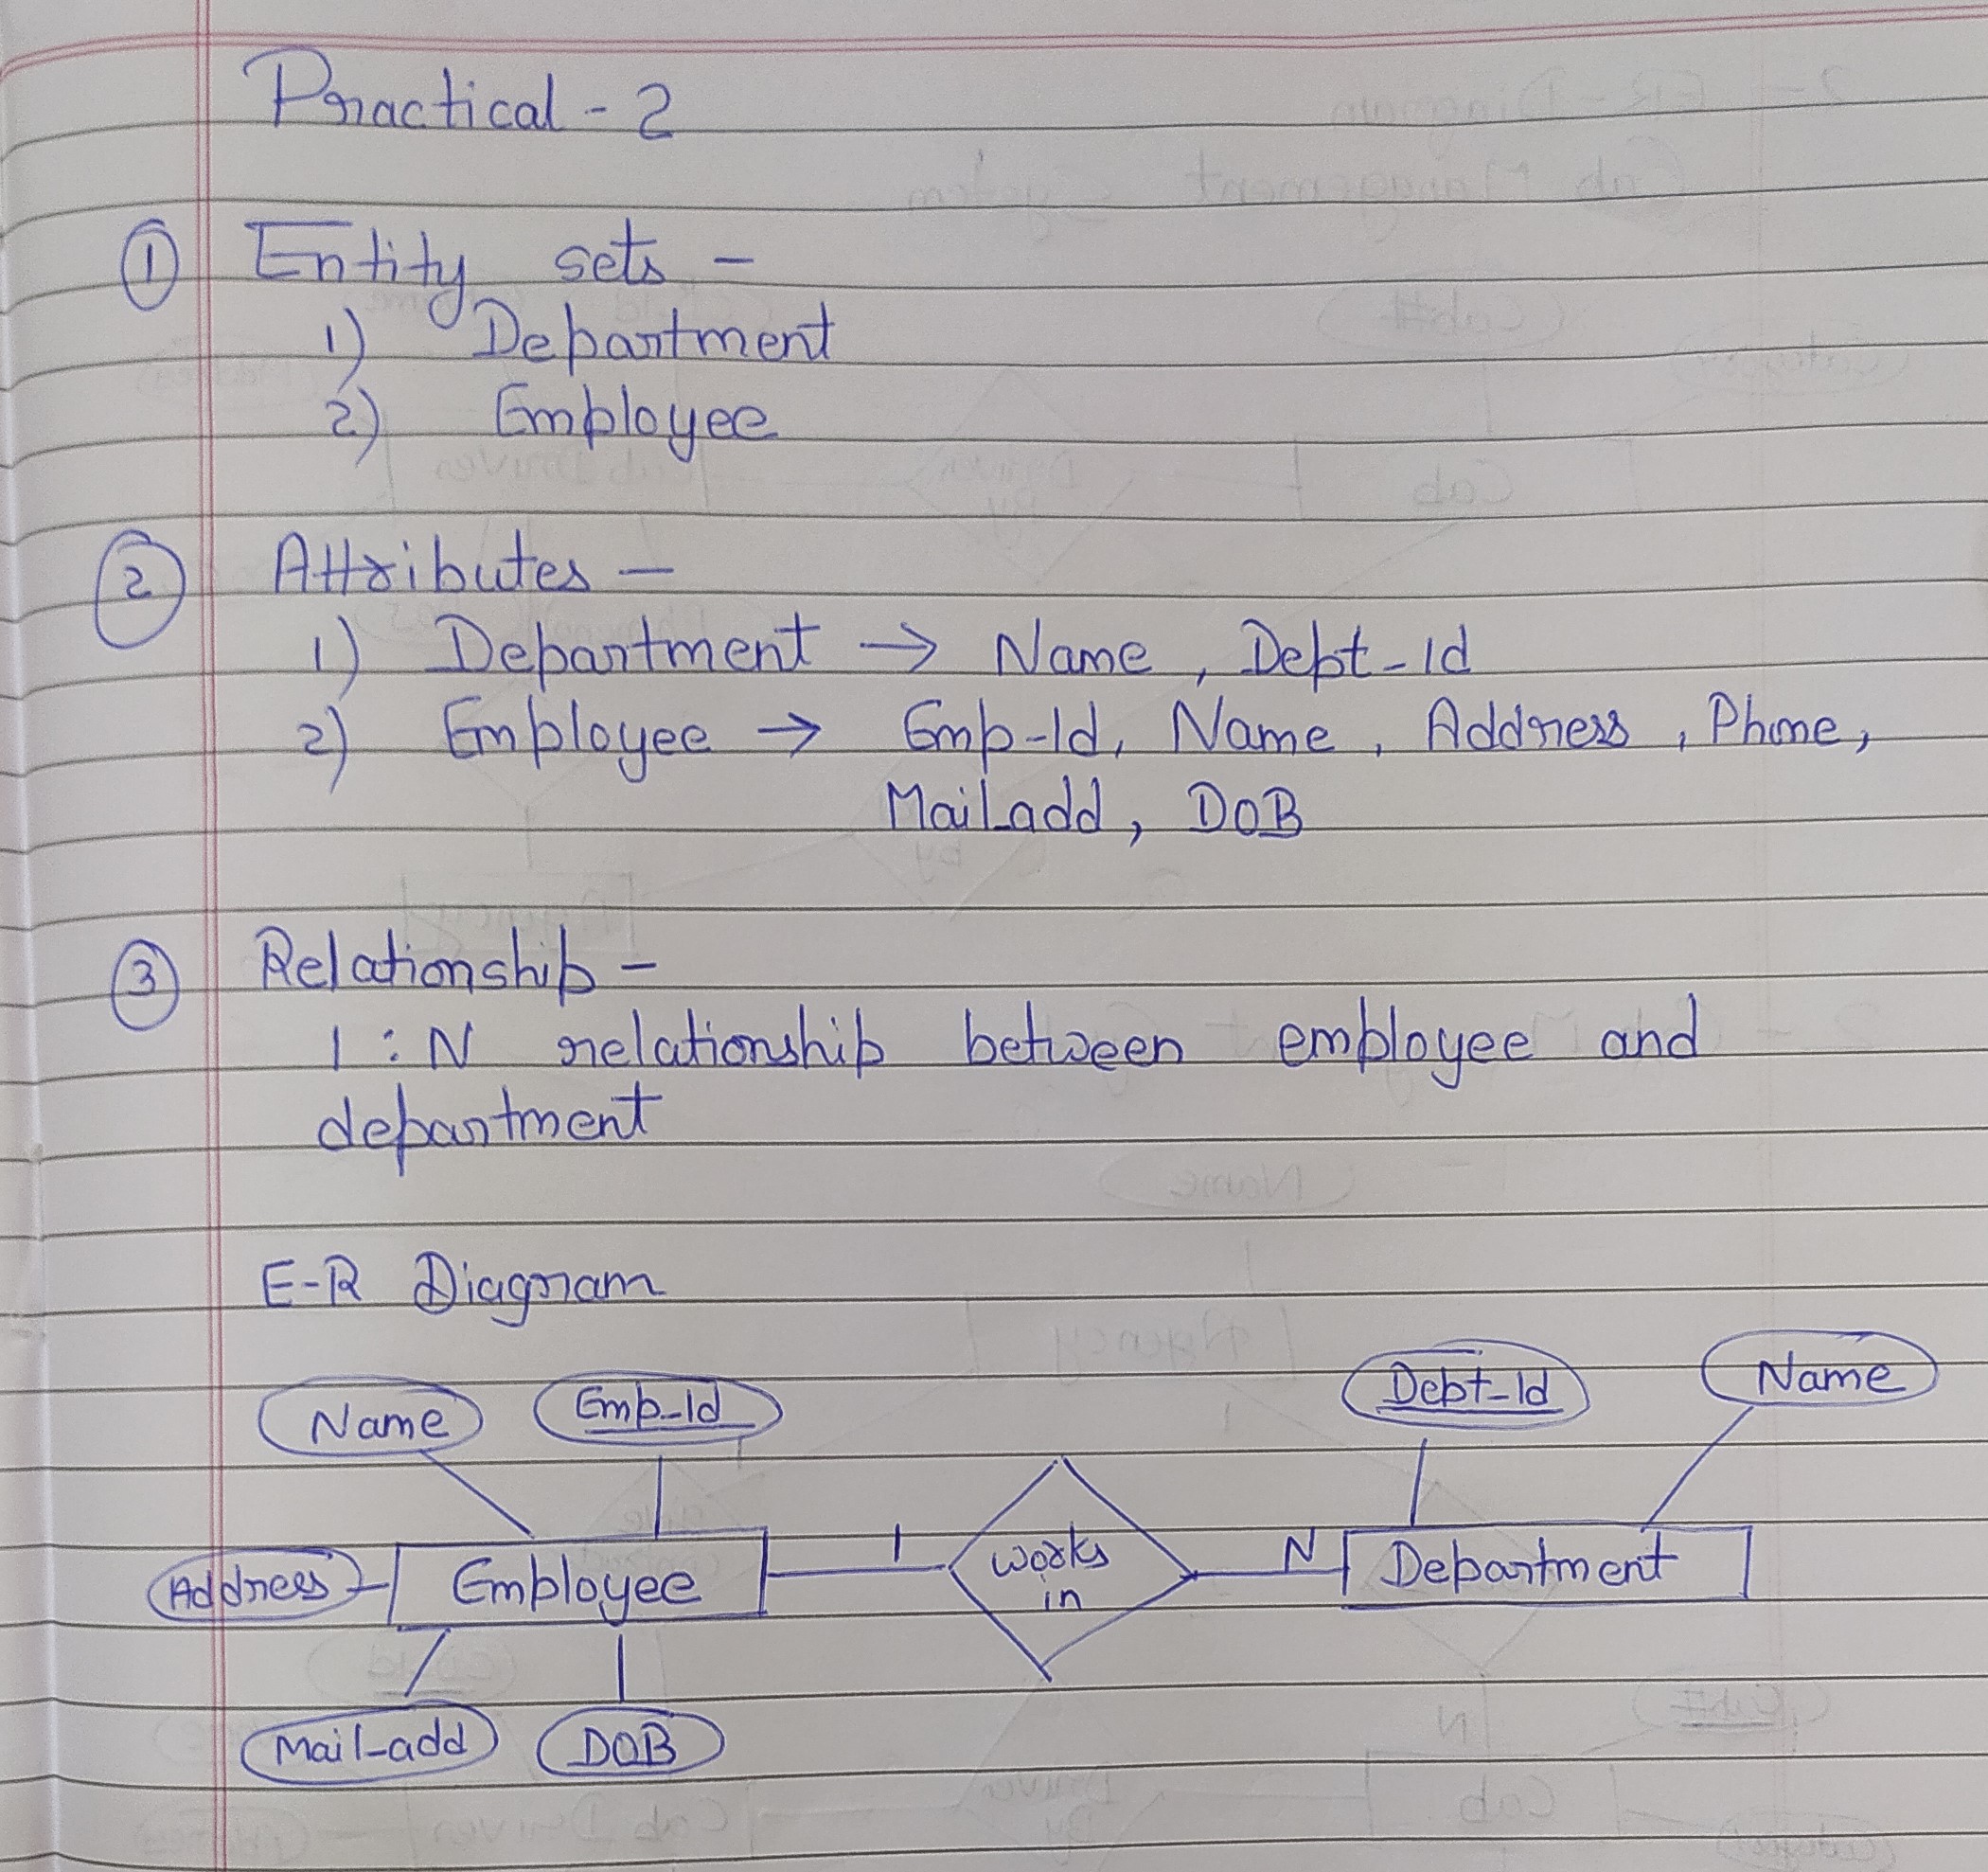 Practical - 2
① Entity sets -
1) Department
2) Employee
② Attributes -
1) Department → Name, Dept-Id
2) Employee → Emp-Id, Name, Address, Phone,
Mail_add, DOB
③ Relationship -
1 : N relationship between employee and
department
E-R Diagram
Name Emp-Id Dept-Id Name
Address Employee 1 works in N Department
Mail-add DOB